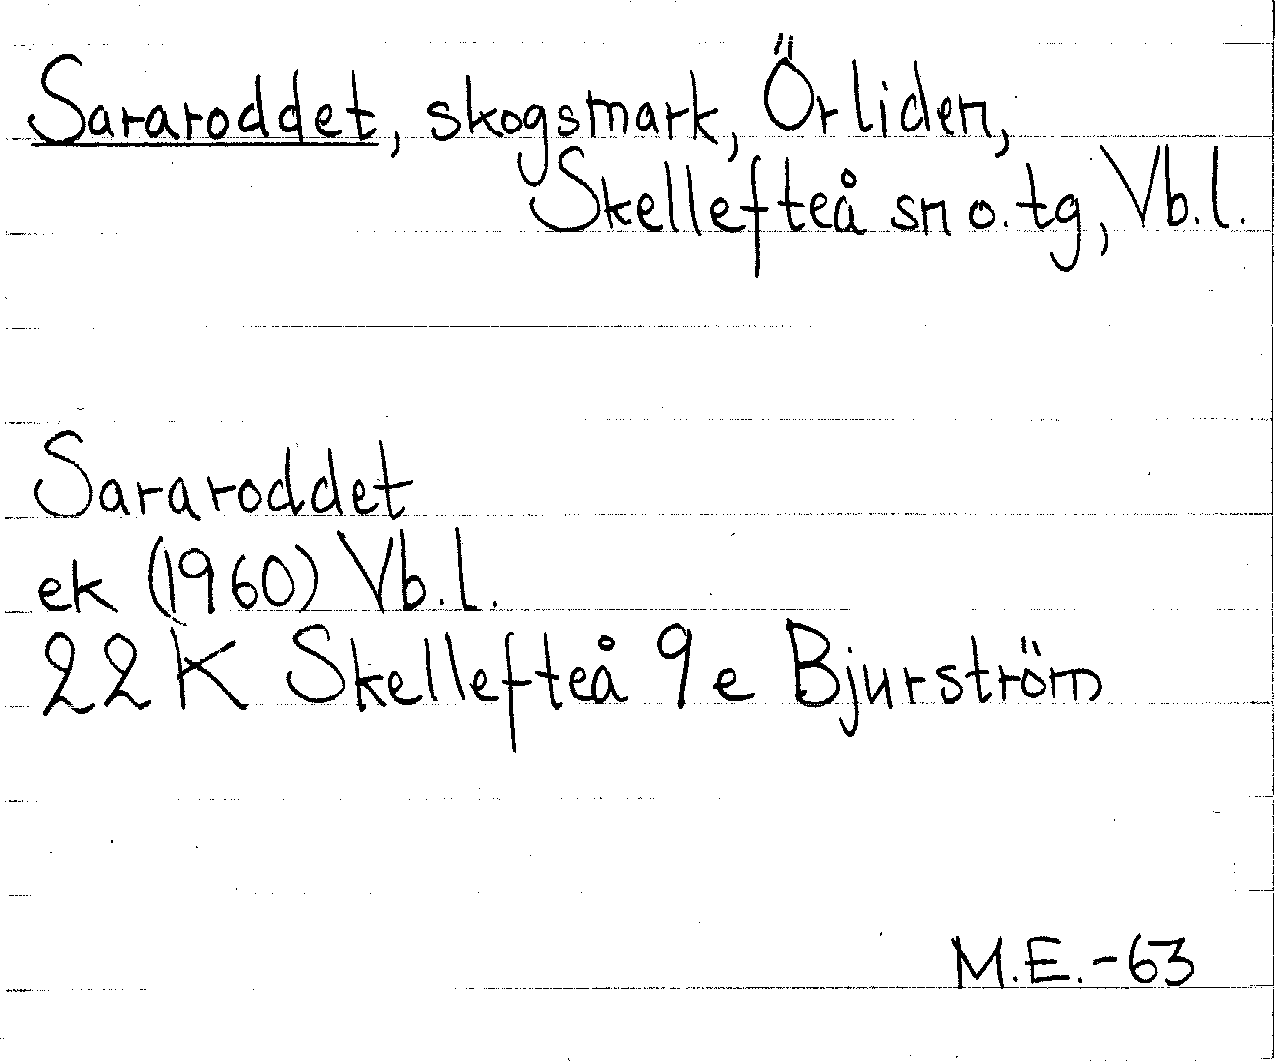 Sararoddet, skogsmark, Örliden,
Skellefteå sn o. tg, Vb.l.
Sararoddet
ek (1960) Vb.l.
22 K Skellefteå 9e Bjurström
M.E.-63